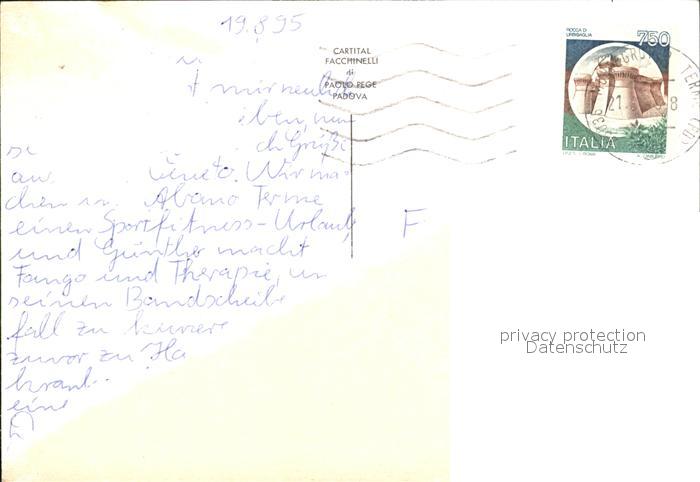 19.8.95
CARTITAL
FACCHINELLI
di
PAOLO PEGE
PADOVA
ROCCA DI
URBISAGLIA
750
ITALIA
TERME
21.
8
mir neulich
ben, nun
ch Grüße
au Veneto. Wir ma-
chen in Abano Terme
einen Sportfitness-Urlaub
F
und Günther macht
Fango und Therapie, um
seinen Bandscheibe
fall zu kuriere
zuvor zu Ha
krank
eine
privacy protection
Datenschutz